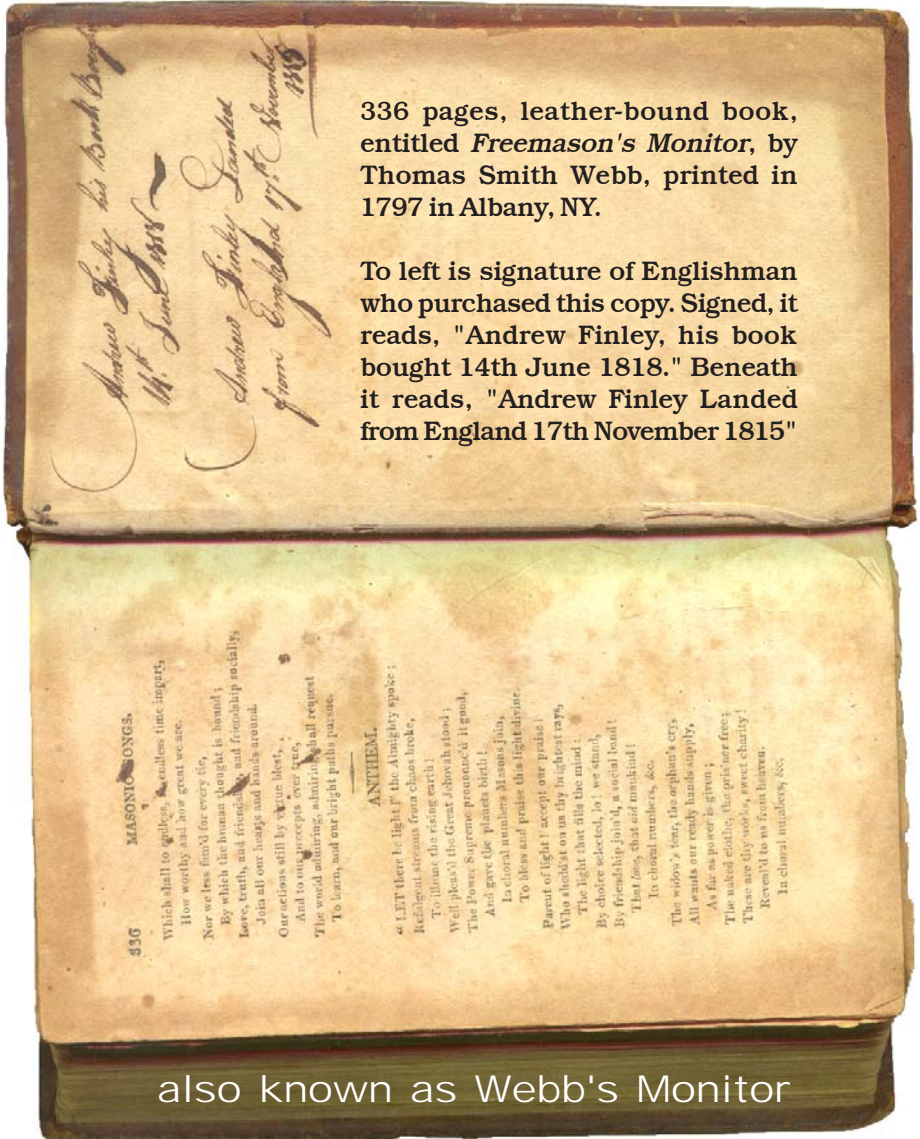 Andrew Finley his Book Bough
14th June 1818
Andrew Finley Landed
from England 17th November
1815
336 pages, leather-bound book,
entitled Freemason's Monitor, by
Thomas Smith Webb, printed in
1797 in Albany, NY.
To left is signature of Englishman
who purchased this copy. Signed, it
reads, "Andrew Finley, his book
bought 14th June 1818." Beneath
it reads, "Andrew Finley Landed
from England 17th November 1815"
336 MASONIC SONGS.
Which shall to endless, endless time impart,
How worthy and how great we are.
Nor we less fam'd for every tie,
By which the human thought is bound;
Love, truth, and friendship socially,
Join all our hearts and hands around.
Our actions still by virtue blest,
And to our precepts ever true,
The world admiring, admiring shall request
To learn, and our bright paths pursue.
ANTHEM.
"LET there be light!" the Almighty spoke;
Refulgent streams from chaos broke,
To illume the rising earth!
Well pleas'd the Great Jehovah stood;
The Power Supreme pronounc'd it good,
And gave the planets birth!
In choral numbers Masons join,
To bless and praise this light divine.
Parent of light! accept our praise!
Who shedd'st on us thy brightest rays,
The light that fills the mind:
By choice selected, lo! we stand,
By friendship join'd, a social band!
That love, that aid mankind!
In choral numbers, &c.
The widow's tear, the orphan's cry,
All wants our ready hands supply,
As far as power is given;
The naked clothe, the pris'ner free;
These are thy works, sweet charity!
Reveal'd to us from heaven.
In choral numbers, &c.
also known as Webb's Monitor